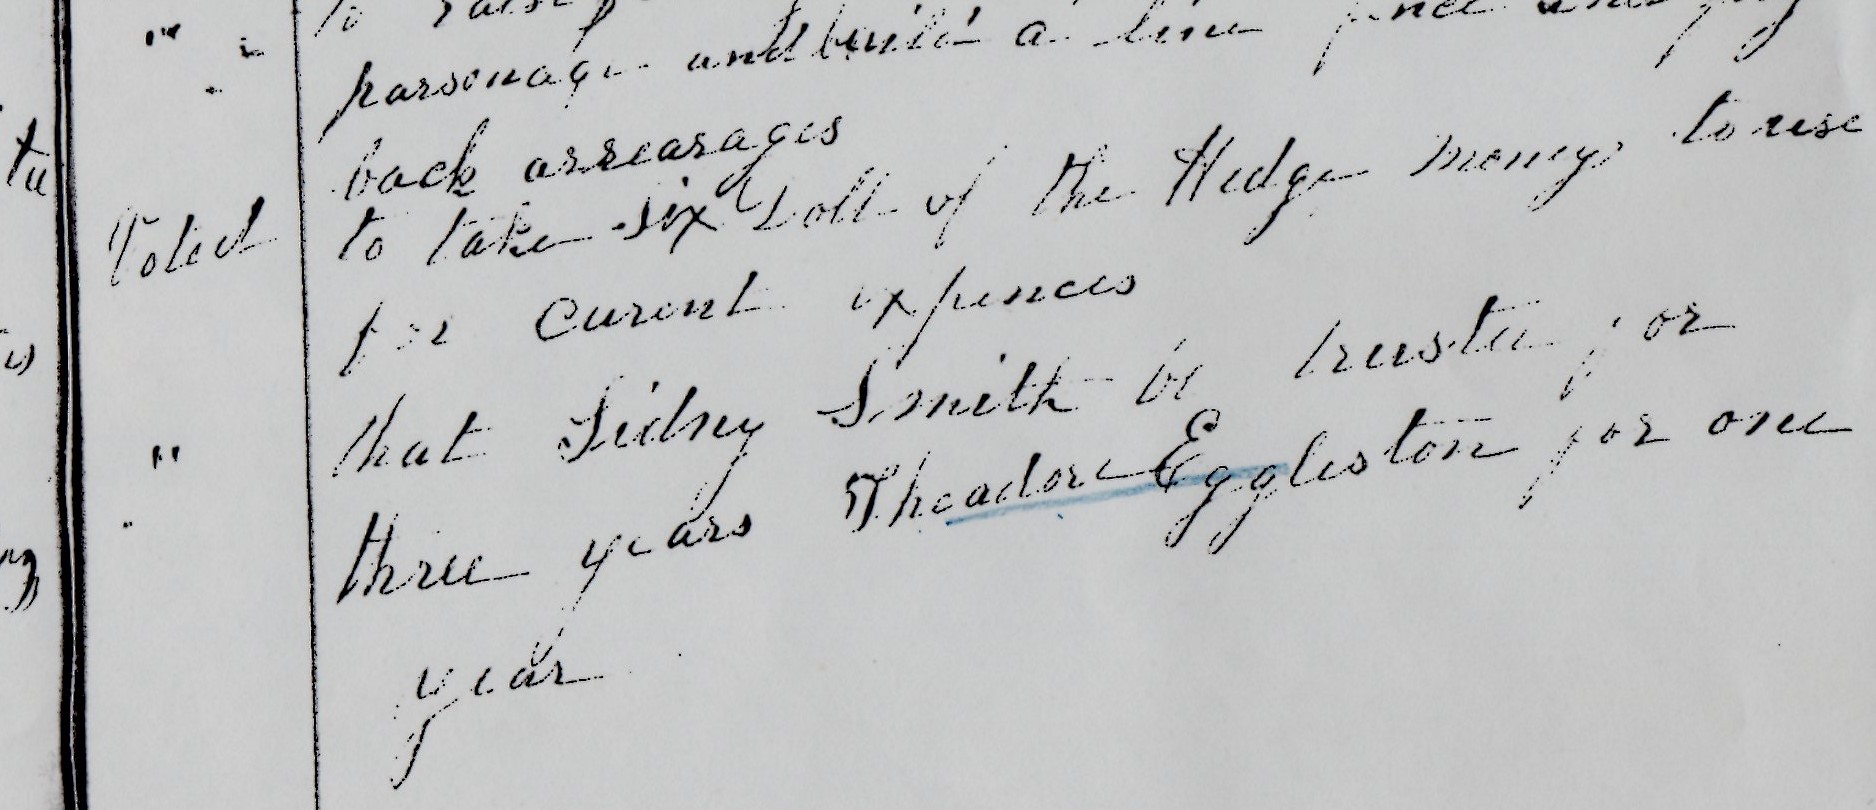 " to raise
parsonage and build a line fence and pay
back arrearages
Voted to take six Doll of the Hedge money to use
for curent expences
" that Sidney Smith be trustee for
three years Theadore Eggleston for one
year